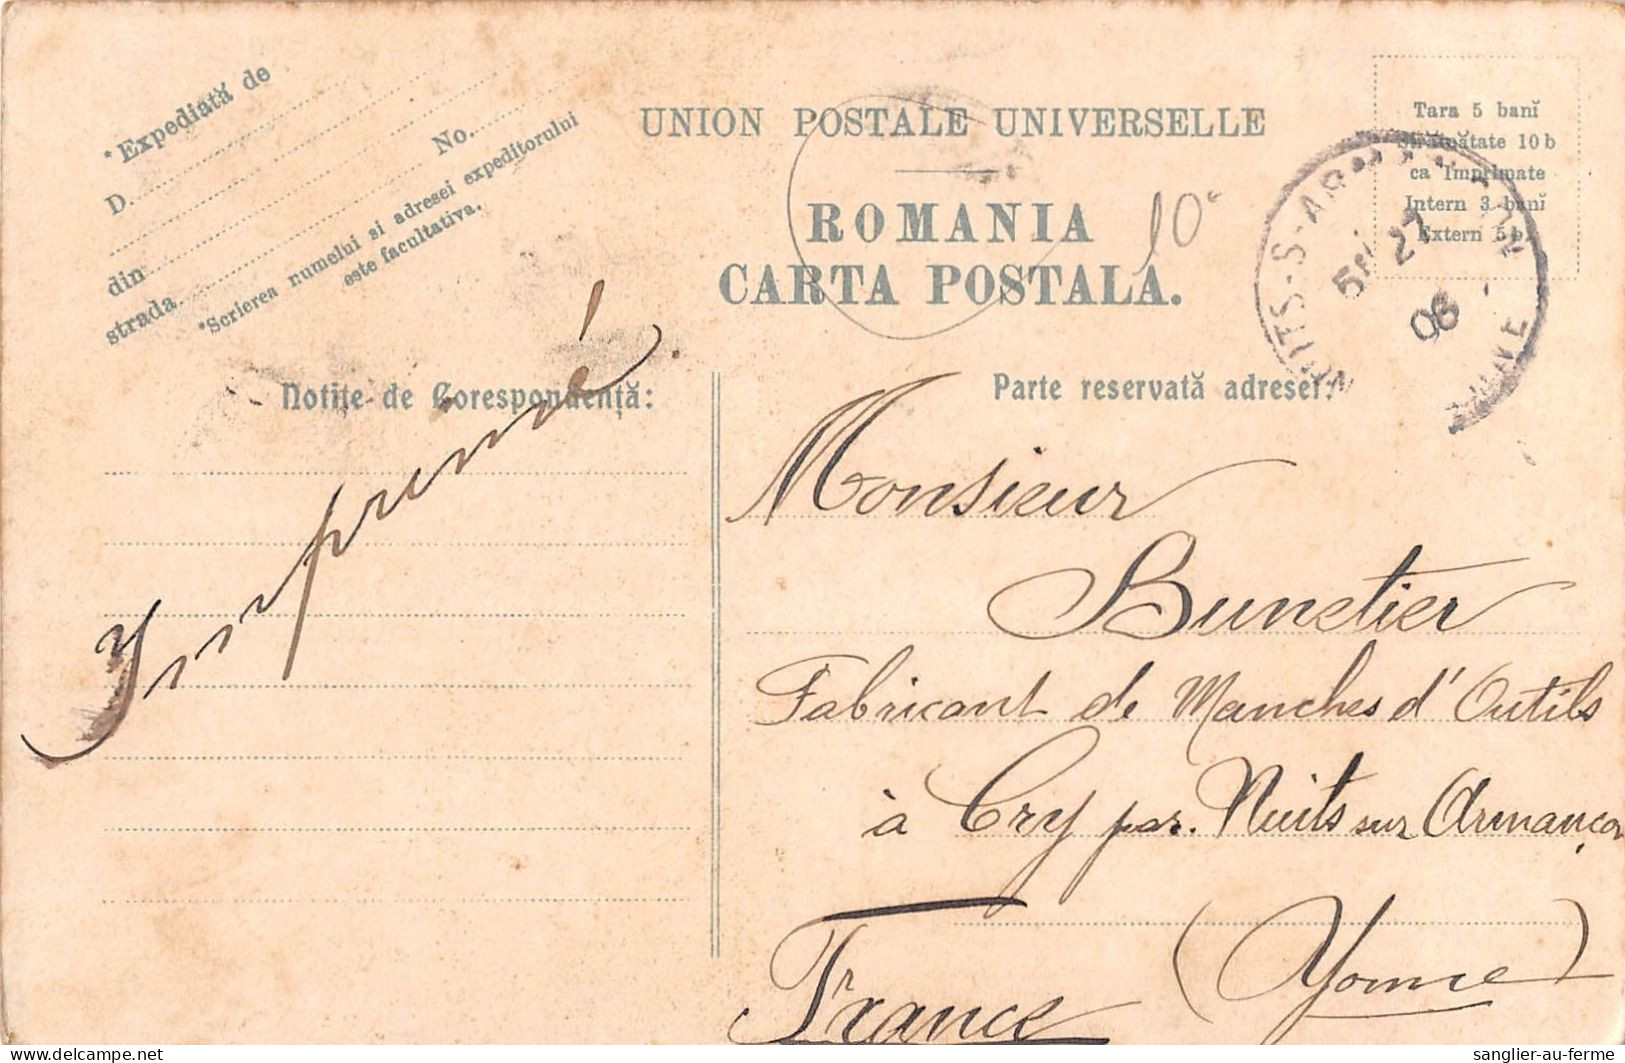 *Expediată de
D.
No.
din
strada
*Scrierea numelui si adresei expeditorului
este facultativa.
UNION POSTALE UNIVERSELLE
ROMANIA
CARTA POSTALA.
10c
Tara 5 banĭ
Străinătate 10 b
ca Imprimate
Intern 3 banĭ
Extern 5 b.
ITS-S-AR
27
06
Notițe de Corespondență:
Parte reservată adresei:
Imprimé
Monsieur
Bunetier
Fabricant de Manches d'Outils
à Cry par. Nuits sur Armançon
(Yonne)
France
delcampe.net
sanglier-au-ferme